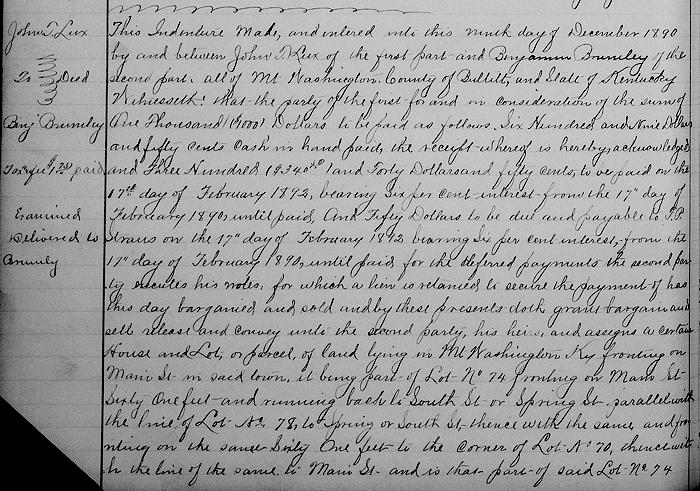 John T. Lux
To Deed
Benj Brumley
Tax & fee 1.75 paid
Examined
Delivered to
Brumly
This Indenture Made, and intered into this ninth day of December 1890
by and between John T. Lux of the first part and Benjamin Brumley of the
second part, all of Mt Washington County of Bullitt, and State of Kentucky
Witnesseth: that the party of the first for and in consideration of the sum of
One Thousand (1000) Dollars to be paid as follows, Six Hundred and Nine Dollars
and fifty cents Cash in hand paid, the receipt whereof is hereby, acknowledged
and Three Hundred ($340 50) and Forty Dollars and fifty cents, to be paid on the
17th day of February 1892, bearing Six per cent interest from the 17" day of
February 1890, until paid, And Fifty Dollars to be due and payable to
Straus on the 17" day of February 1892 bearing Six per cent interest, from the
17" day of February 1890, until paid, for the deferred payments the second par
ty executes his notes, for which a lien is retained to secure the payment of has
this day bargained and sold and by these presents doth grant bargain and
sell release and convey unto the second party, his heirs, and assigns a certain
House and Lot, or parcel, of land lying in Mt Washington Ky fronting on
Main St in said town, it being part of Lot No 74 fronting on Main St
Sixty One feet and running back to South St or Spring St parallel with
the line of Lot No. 78, to Spring or South St, thence with the same and fro
nting on the same Sixty One feet to the corner of Lot No 70, thence wit
h the line of the same to Main St and is that part of said Lot No. 74